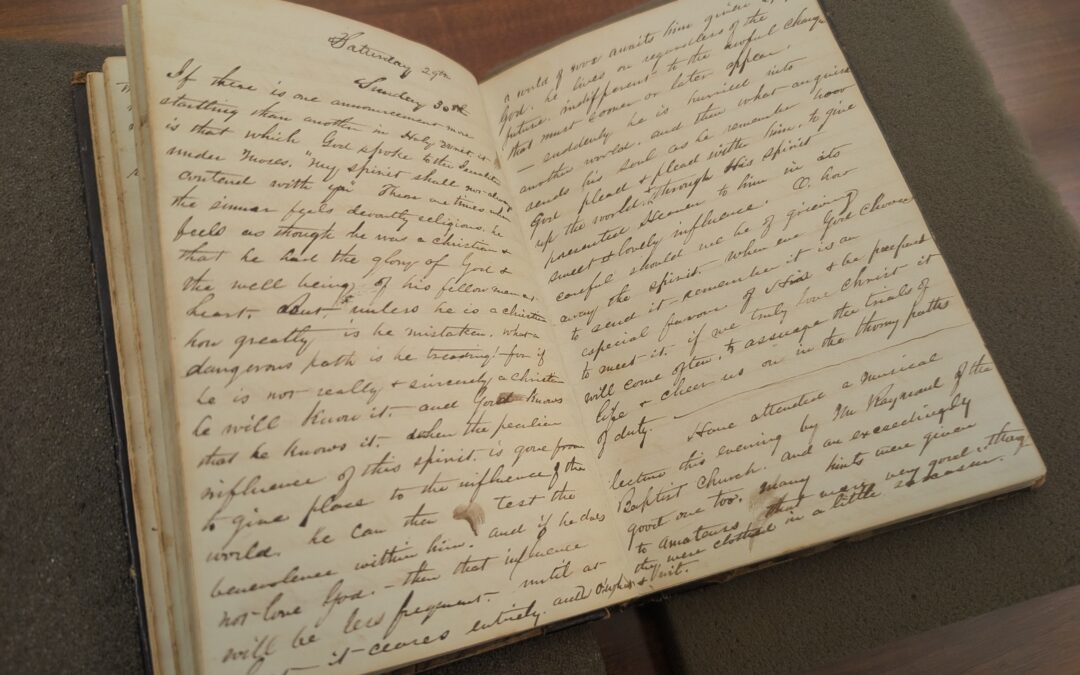 Saturday 29th
Sunday 30th
If there is one announcement more
startling than another in Holy writ, it
is that which God spoke to the Israelites
under Moses. "My spirit shall not always
contend with ye" There are times when
the sinner feels devoutly religious. he
feels as though he was a christian &
that he had the glory of God &
the well being of his fellow men at
heart. But unless he is a christian
how greatly is he mistaken. what a
dangerous path is he treading! for if
he is not really & sincerely a christian
he will know it - and God knows
that he knows it - when the peculiar
influence of this spirit is gone from
to give place to the influence of the
world. he can then test the
benevolence within him. and if he does
not love God. - then that influence
will be less frequent - until at
it ceases entirely. and
a world of awaits him given
God. he lives on regardless of the
future indifferent to the awful change
that must sooner or later appear.
- suddenly he is hurried into
another world. and then what anguish
rends his soul as he remembers how
God plead & plead with him, to give
up the world. Through His Spirit
presented Heaven to him in its
sweet & lovely influence. O. how
careful should we be of grieving
away the spirit - when ever God chooses
to send it - remember it is an
especial favor of His & be prepared
to meet it. if we truly love Christ it
will come often, to assuage the trials of
life & cheer us on in the thorny paths
of duty.
Have attended a musical
lecture this evening by Mr Raymond of the
Baptist Church. and an exceedingly
good one too. Many hints were given
to amateurs that were very good. though
they were clothed in a little sarcasm.
& wit.